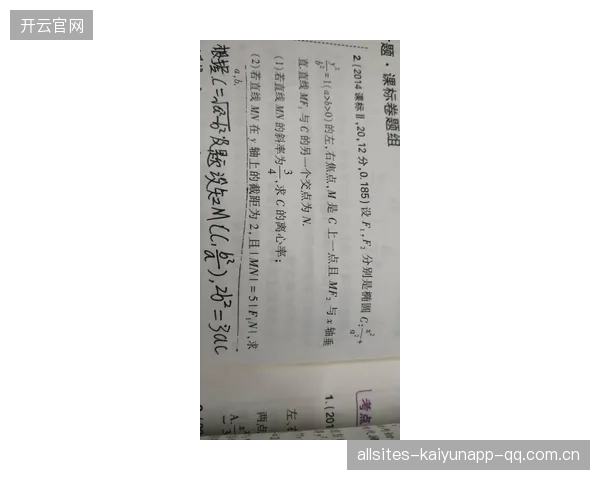 开云官网
题·课标卷题组
2.(2014课标Ⅱ,20,12分,0.185)设F₁,F₂分别是椭圆C:x²/a²+
y²/b²=1(a>b>0)的左,右焦点,M是C上一点且MF₂与x轴垂
直.直线MF₁与C的另一个交点为N.
(1)若直线MN的斜率为3/4,求C的离心率;
(2)若直线MN在y轴上的截距为2,且|MN|=5|F₁N|,求
a,b.
根据C=√a²-b²及题设知M(C,b²/a),2b²=3ac
考点
1.(201
左、
两点
A.
allsites-kaiyunapp-qq.com.cn